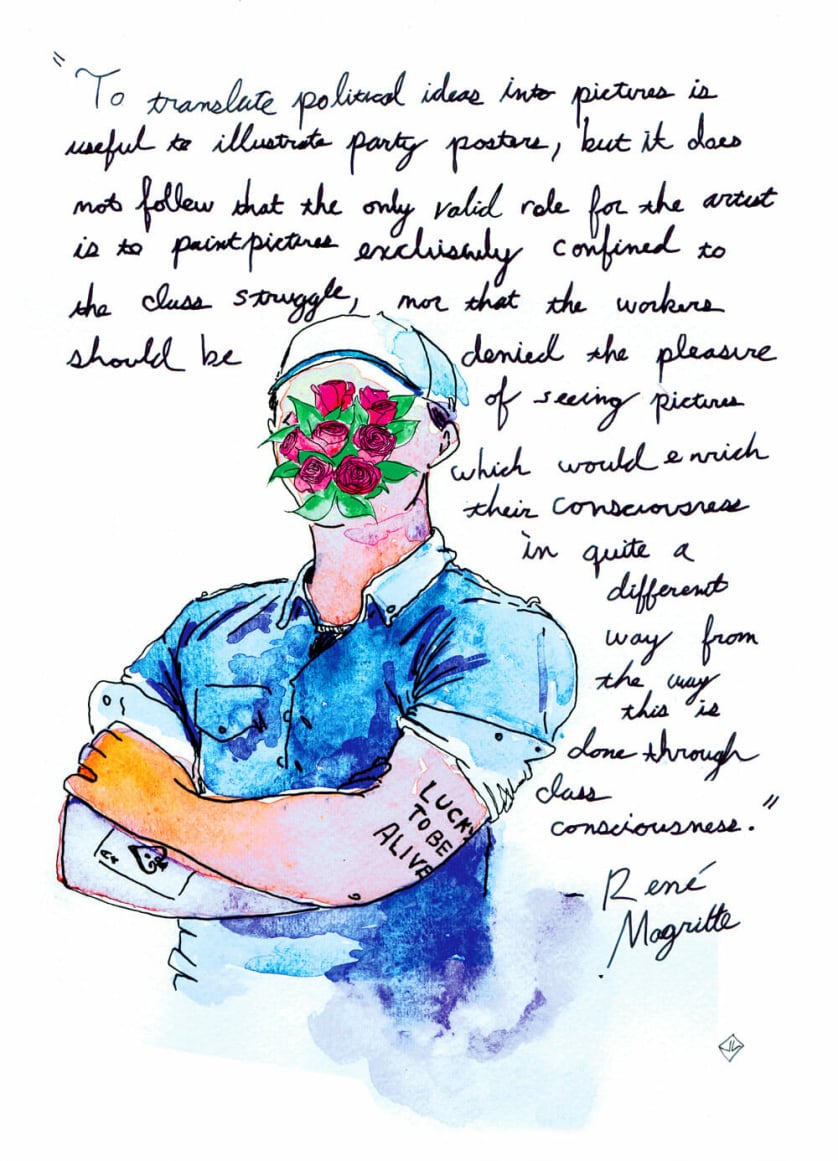 "To translate political ideas into pictures is
useful to illustrate party posters, but it does
not follow that the only valid role for the artist
is to paint pictures exclusively confined to
the class struggle, nor that the workers
should be denied the pleasure
of seeing pictures
which would enrich
their consciousness
in quite a
different
way from
the way
this is
done through
class
consciousness."
- René
Magritte
LUCKY
TO BE
ALIVE